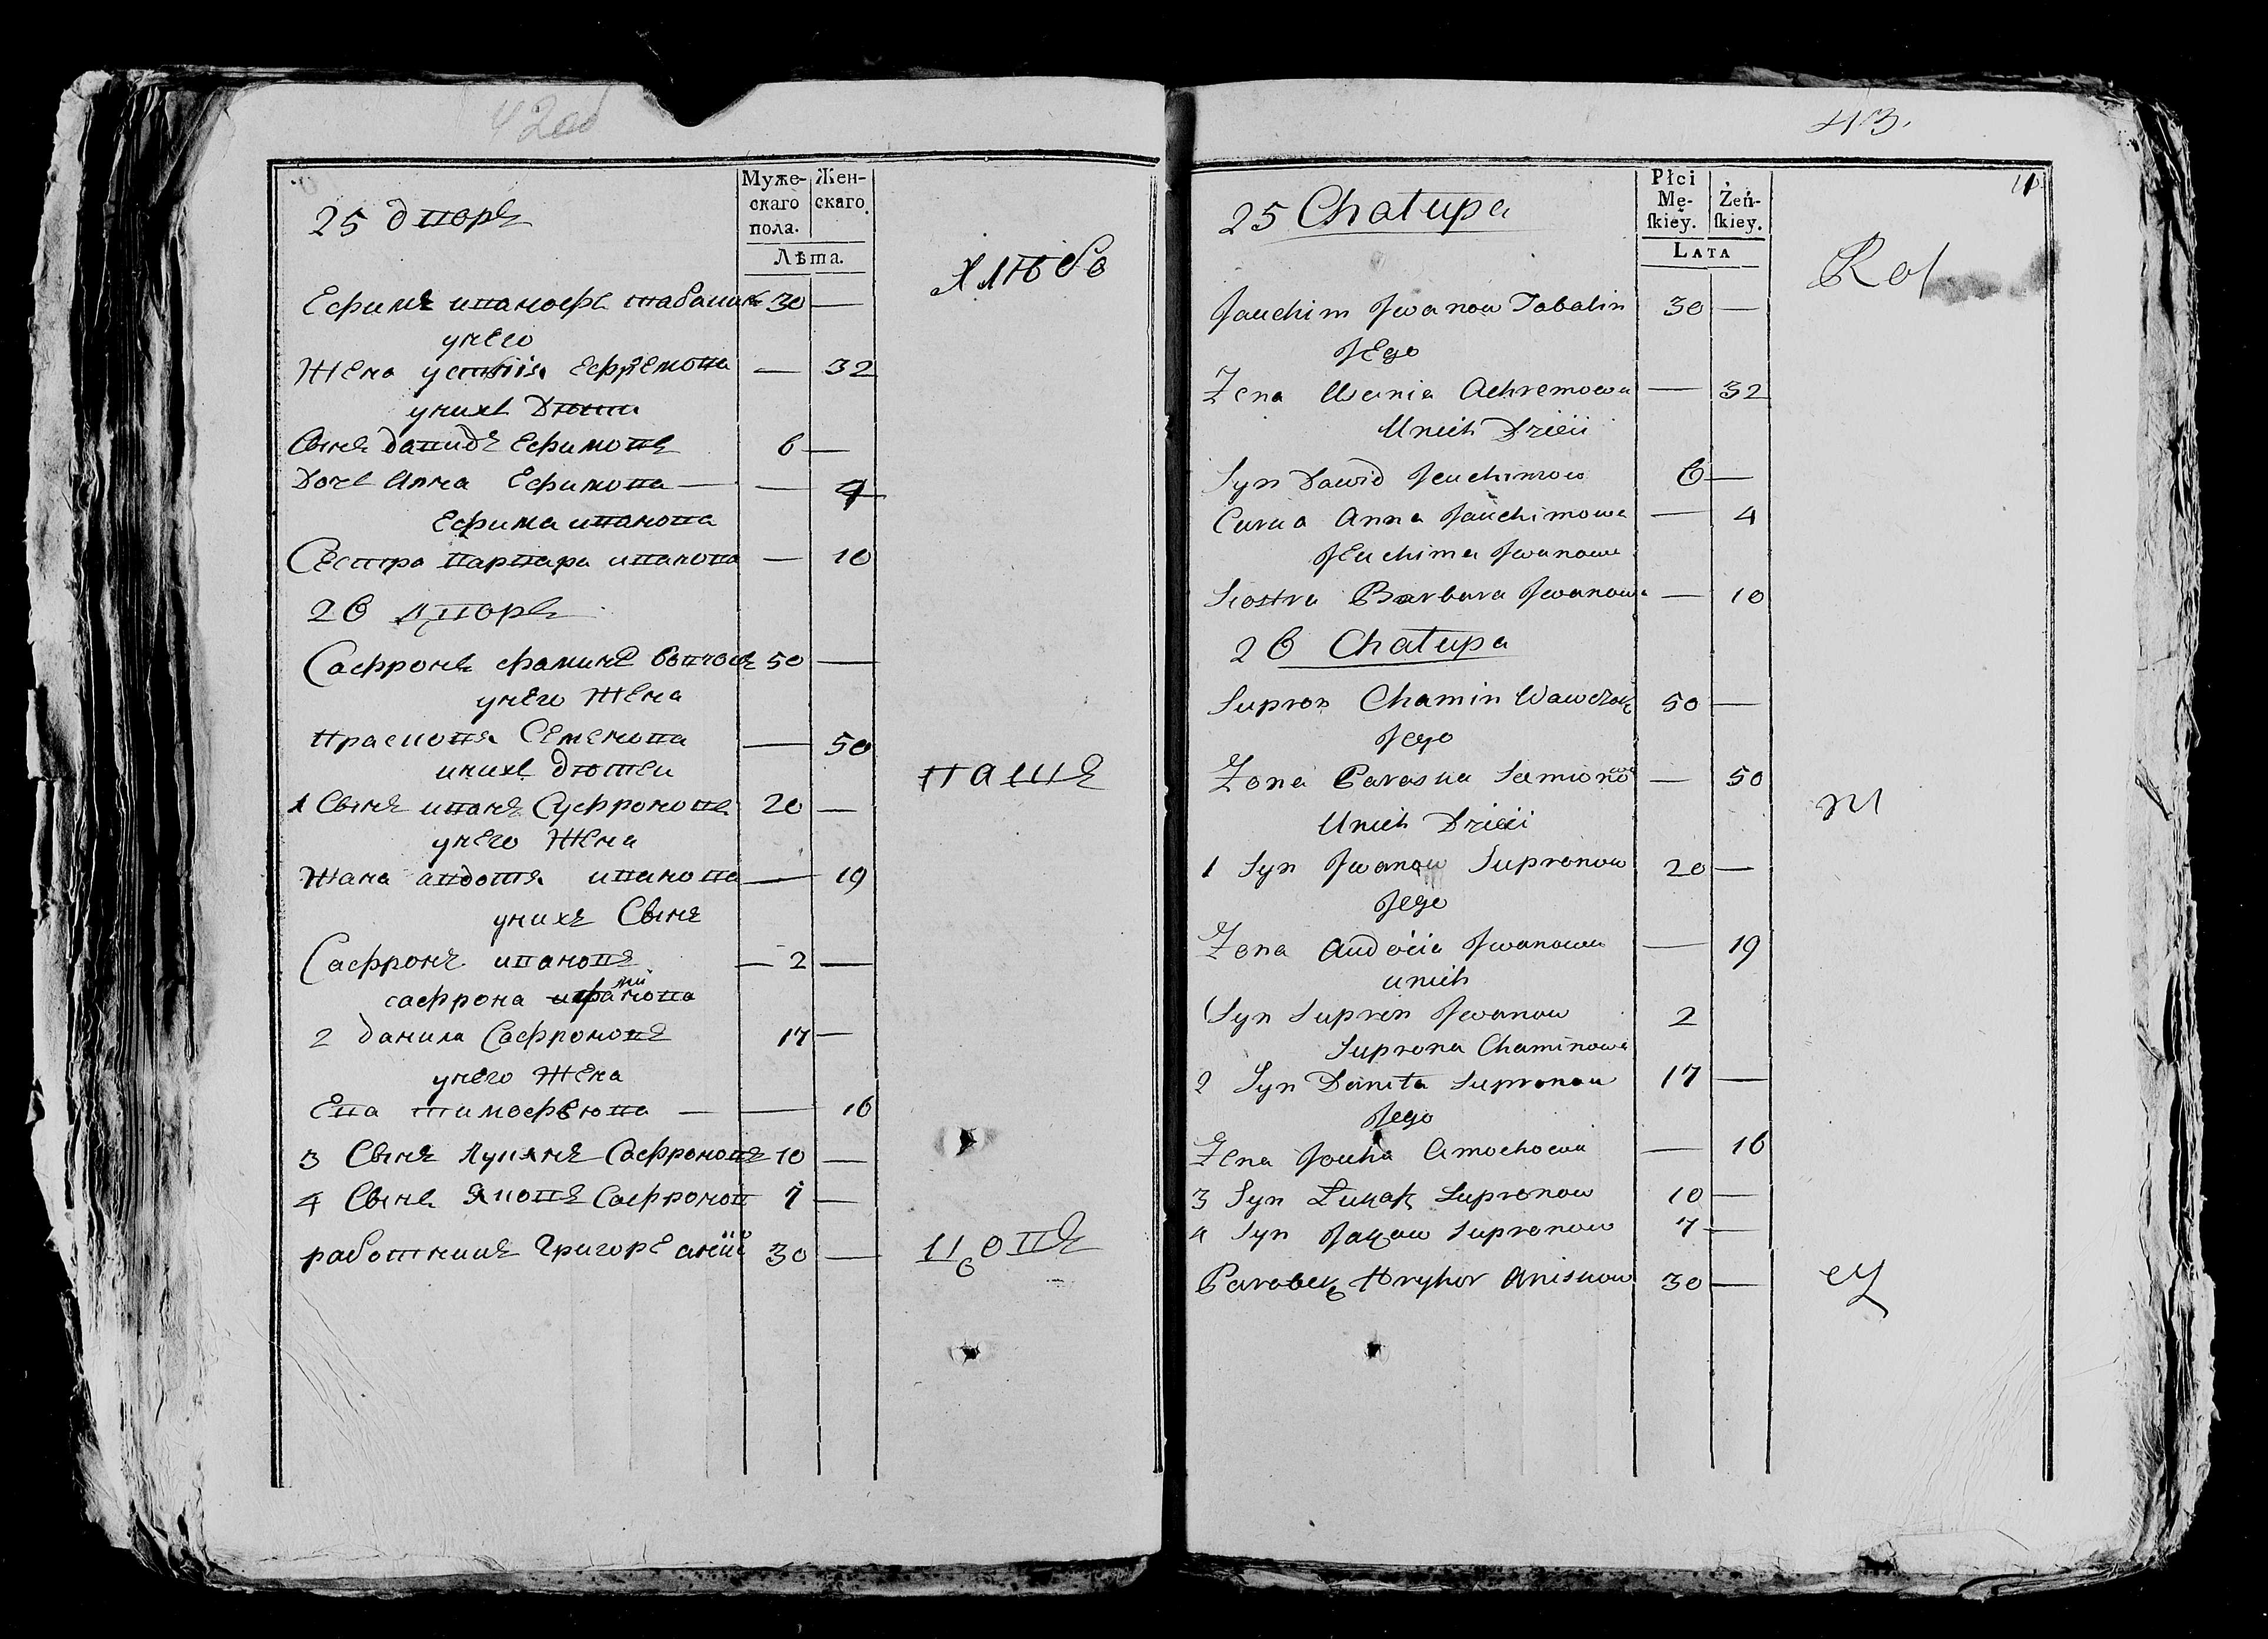 42об
Муже-
скаго
пола.
Жен-
скаго.
Лѣта.
25 дворъ
хлѣбо
Ефимъ ивановъ табалинъ 30 —
у него
Жена устиня Ефремова — 32
у нихъ Дѣти
Сынъ давидъ Ефимовъ 6 —
Дочь Анна Ефимова — — 4
Ефима иванова
Сестра варвара иванова — 10
26 дворъ
Сафронъ фаминъ 50 —
у него Жена
Прасковя Семенова — 50
у нихъ дѣтеи
паше
1 Сынъ иванъ Суфроновъ 20 —
у него Жена
Жана авдотя иванова — 19
у нихъ Сынъ
Сафронъ ивановъ — 2 —
сафрона
2 данила Сафроновъ 17 —
у него Жена
Ева тимофѣюва — — 16
3 Сынъ лукянъ Сафроновъ 10 —
4 Сынъ Яковъ Сафронов 7 —
работникъ Григоре 30 —
цовъ
43.
Płci
Mę-
ſkiey.
Żeń-
ſkiey.
Lata
25 Chałupa
Rol
Jauchim Jwanow Tabalin 30 —
Jego
Zena Ustinia Achremowa — 32
Unich Dzieci
Syn Dawid Jeuchimow 6 —
Curka Anna Jauchimowa — 4
Jeuchima Jwanowa
Siostra Barbara Jwanowa — 10
26 Chałupa
Supron Chamin Wawczok 50 —
Jego
Zona Paraska Semionowa — 50
Unich Dzieci
ni
1 Syn Jwanow Supronow 20 —
Jego
Zona Audocia Jwanowa — 19
unich
Syn Supron Jwanow 2
Suprona Chaminowa
2 Syn Daniła Supronow 17 —
Jego
Zena Jouha Cimochowa — 16
3 Syn Łukak Supronow 10 —
4 Syn Jakow Supronow 7 —
Parabek Hryhor Aniskow 30 —
cy